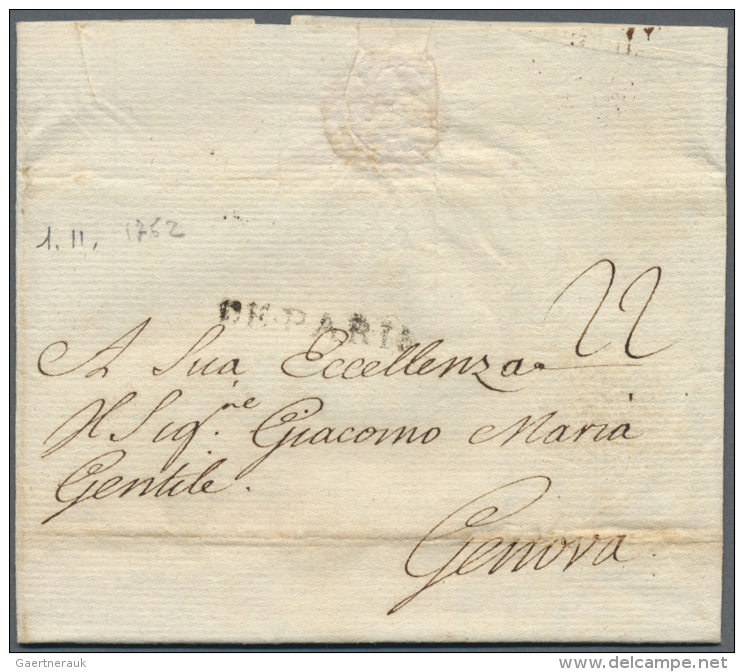 1. II. 1762
DE PARIS
22
A Sua Eccellenza
Il Sig.re Giacomo Maria
Gentile.
Genova.
Gaertnerauk
www.delcampe.net